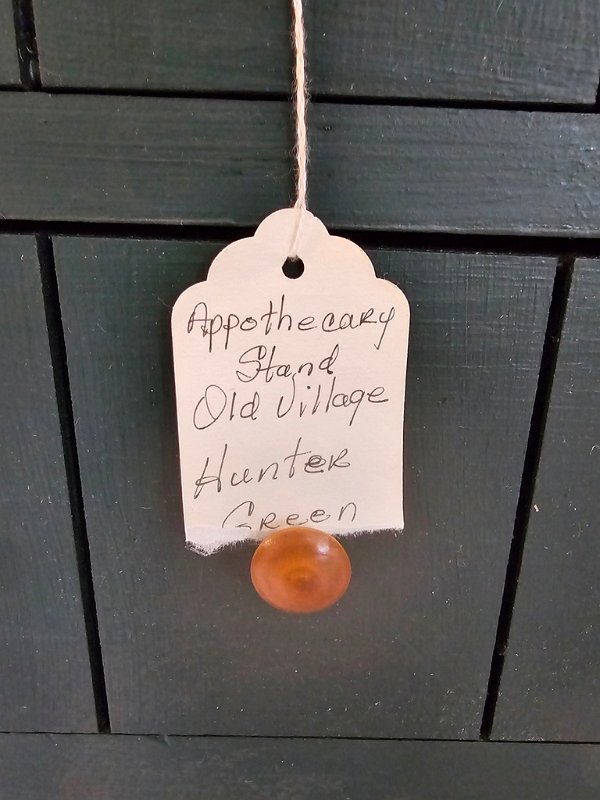 Appothecary
Stand
Old Village
Hunter
Green